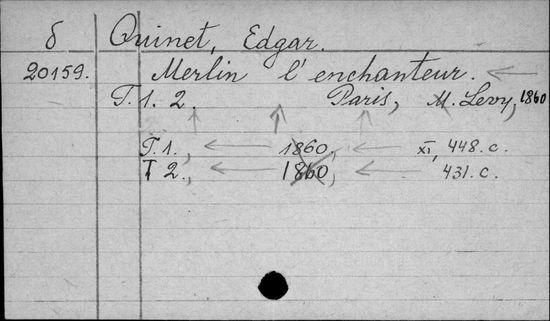 δ Quinet, Edgar.
20159. Merlin l'enchanteur.
T. 1. 2. Paris, M. Levy, 1860
T. 1., 1860, XI, 448. c.
T 2., 1860, 431. c.